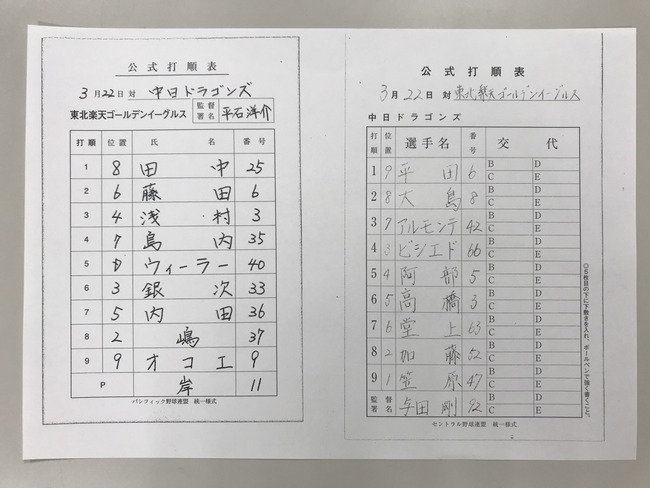 公式打順表
3月22日対 中日ドラゴンズ
東北楽天ゴールデンイーグルス 監督署名 平石洋介
打順 位置 氏名 番号
1 8 田中 25
2 6 藤田 6
3 4 浅村 3
4 7 島内 35
5 D ウィーラー 40
6 3 銀次 33
7 5 内田 36
8 2 嶋 37
9 9 オコエ 9
P 岸 11
パシフィック野球連盟 統一様式
公式打順表
3月22日対 東北楽天ゴールデンイーグルス
中日ドラゴンズ
打順 位置 選手名 番号 交代
1 9 平田 6 B D C E
2 8 大島 8 B D C E
3 7 アルモンテ 42 B D C E
4 3 ビシエド 66 B D C E
5 4 阿部 5 B D C E
6 5 高橋 3 B D C E
7 6 堂上 63 B D C E
8 2 加藤 52 B D C E
9 1 笠原 47 B D C E
監督署名 与田剛 92 B D C E
セントラル野球連盟 統一様式
○5枚目の下に下敷きを入れ、ボールペンで強く書くこと。